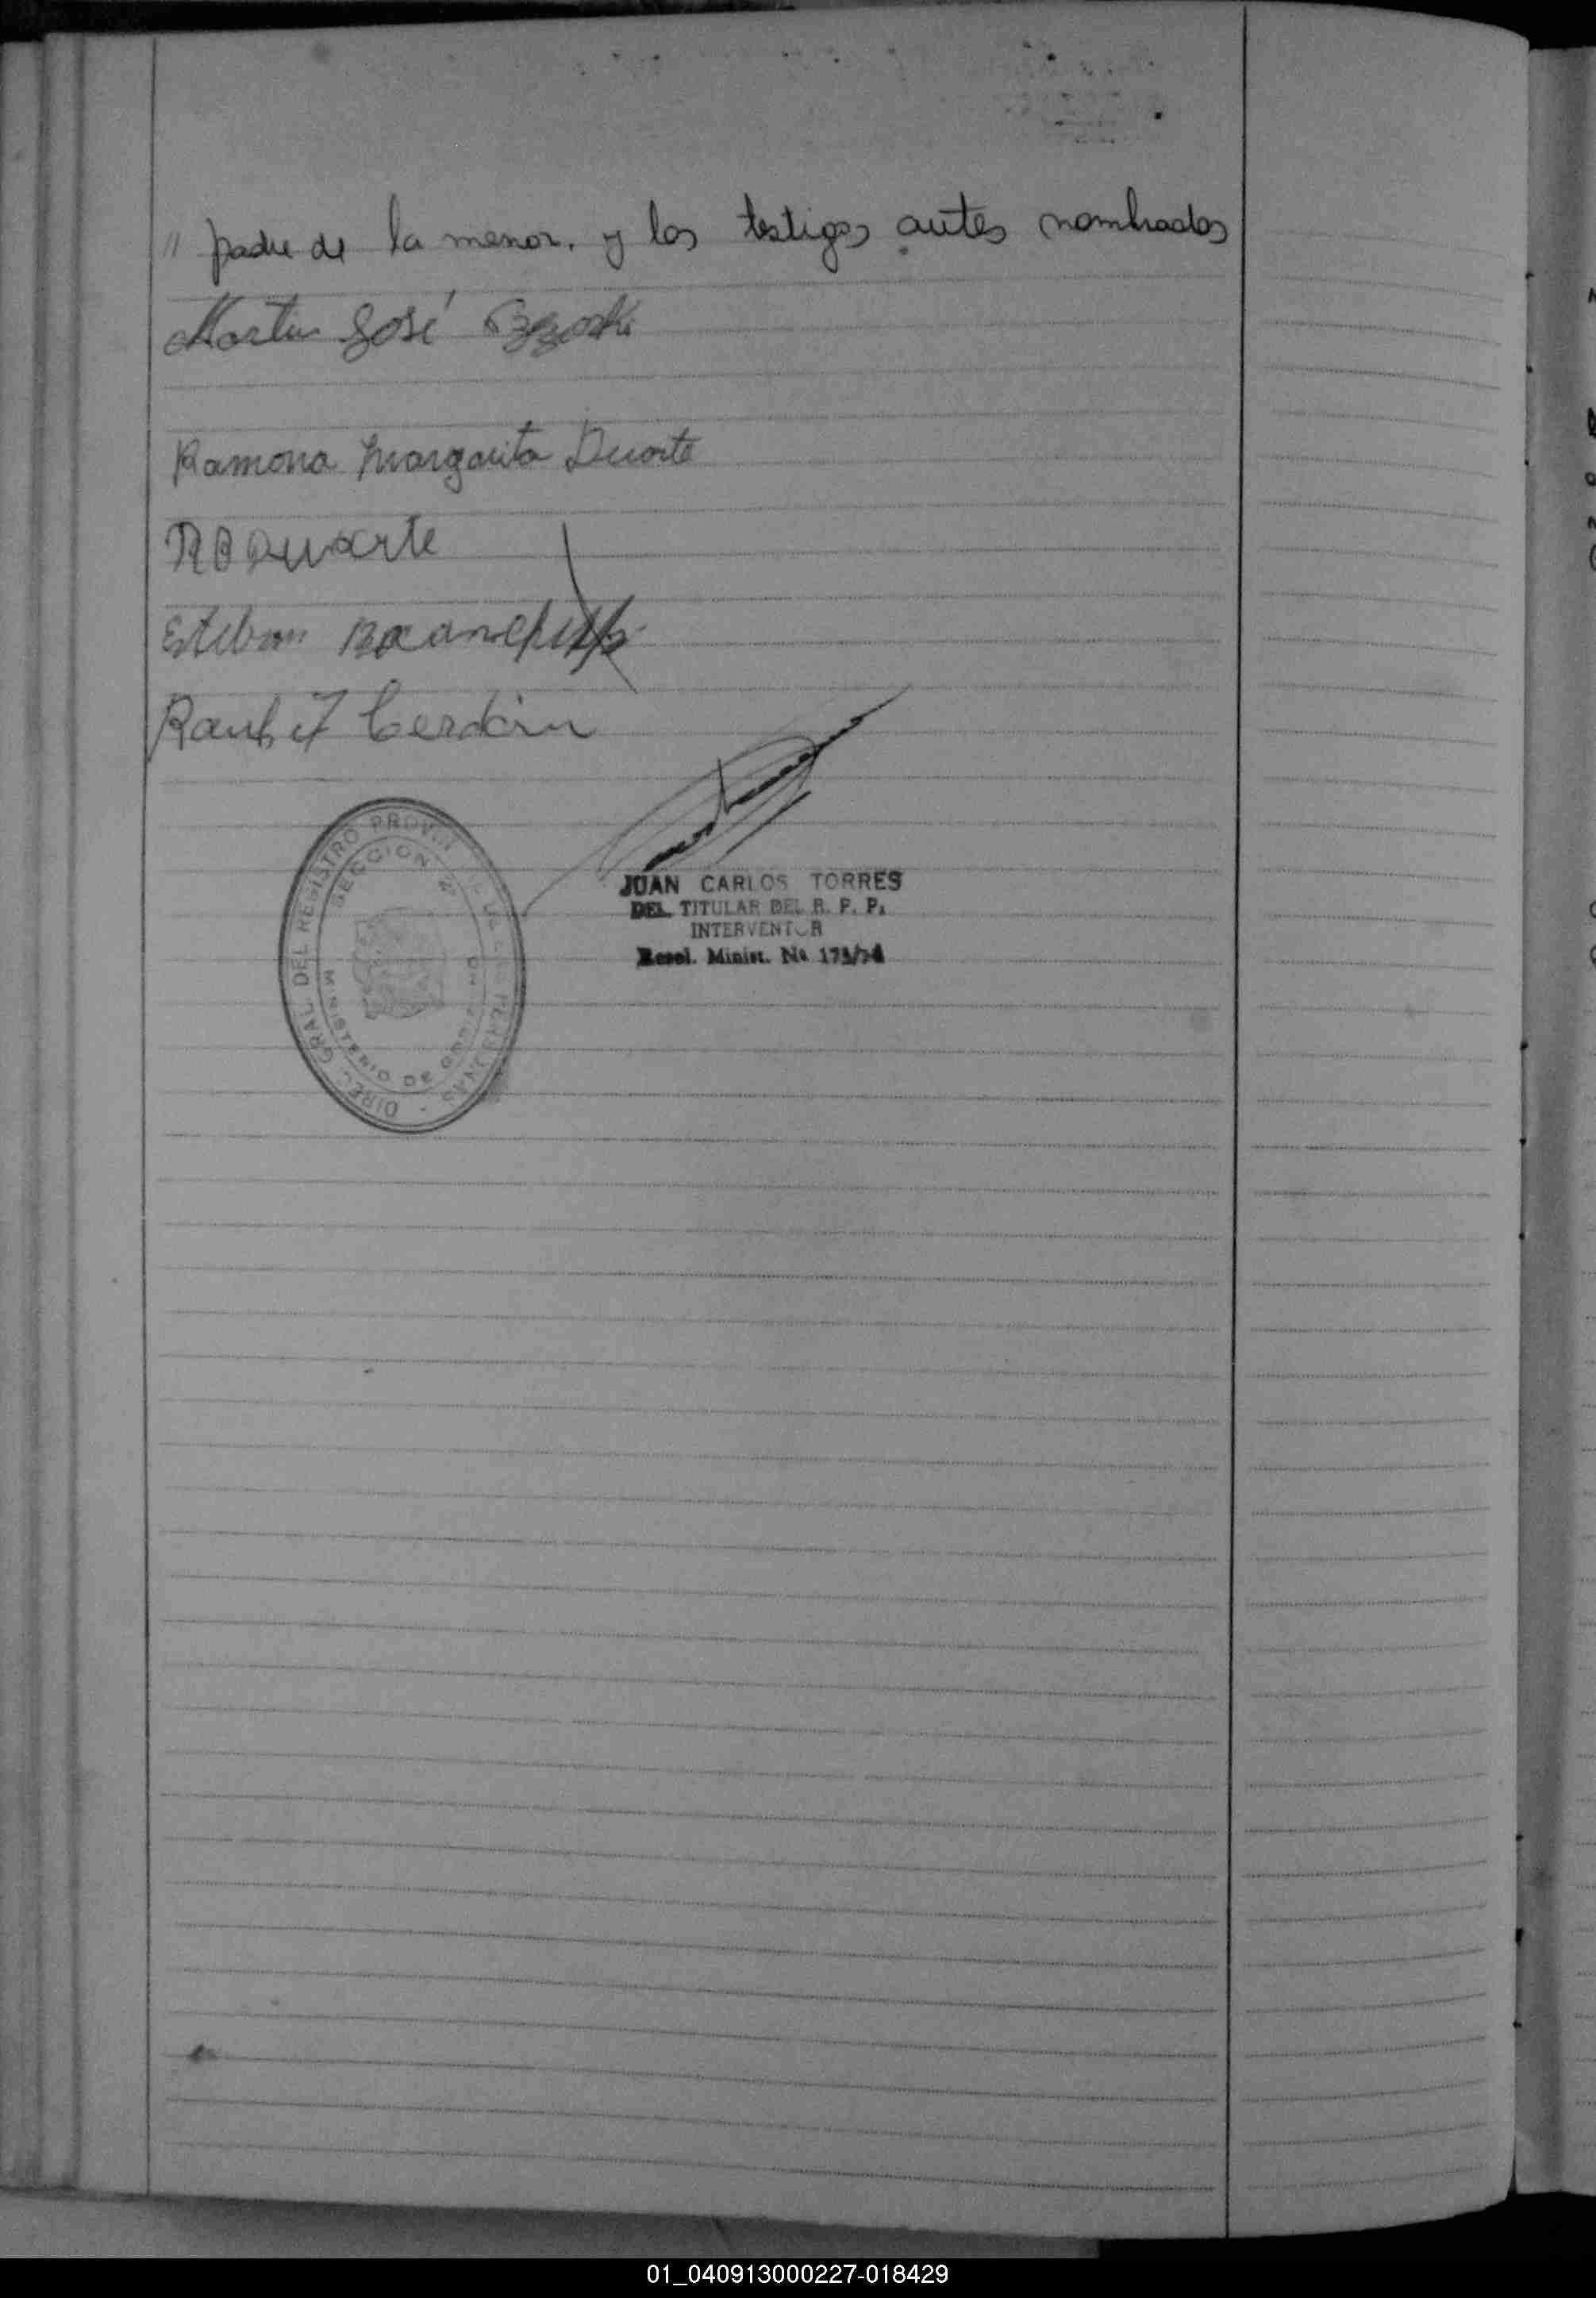 " padre de la menor. y los testigos antes nombrados
Martin José
Ramona Margarita Duarte
R B Duarte
Esteban
Raul Cerdán
DIREC. GRAL. DEL REGISTRO PROVIN DE LAS PERSONAS
SECCION
MINISTERIO DE GOBIERNO
JUAN CARLOS TORRES
DEL TITULAR DEL R. P. P.
INTERVENTOR
Resol. Minist. No 173/74
01_040913000227-018429